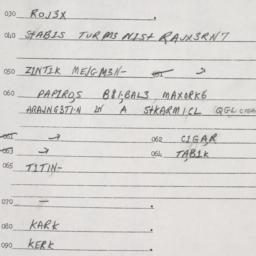 030 ROJ3X
040 STABIS TURM3 NIST RAJX3RN7
050 ZINTIK MEJGM3H-
060 PAPIRO,S B8I;BAL3 MAXORK6
ARAJNG3TIN IN A STKARMICL
061
062 CIGA,R
063
064 TA,BIK
065 TITIN-
070 -
080 KARK
090 KERK